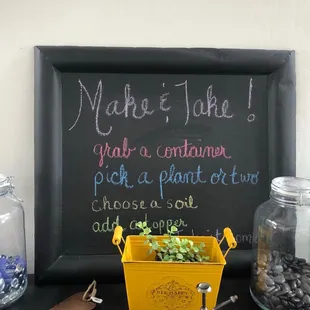 Make & Take!
grab a container
pick a plant or two
choose a soil
add a topper
it home